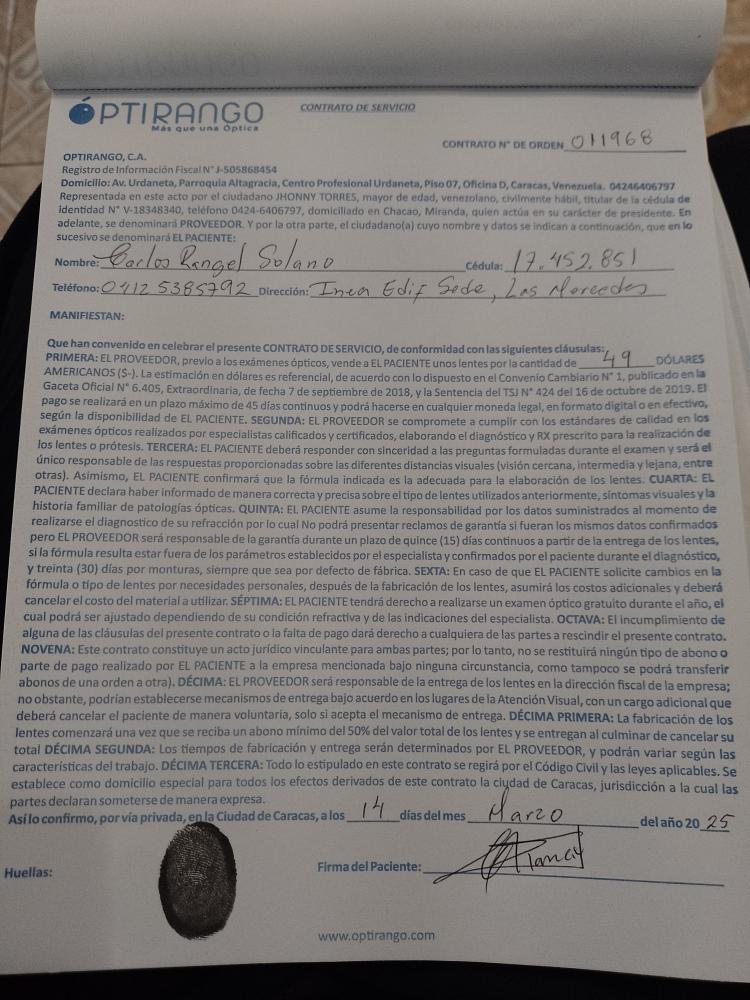 ÓPTIRANGO
Más que una Óptica
CONTRATO DE SERVICIO
CONTRATO N° DE ORDEN 011968
OPTIRANGO, C.A.
Registro de Información Fiscal N° J-505868454
Domicilio: Av. Urdaneta, Parroquia Altagracia, Centro Profesional Urdaneta, Piso 07, Oficina D, Caracas, Venezuela. 04246406797
Representada en este acto por el ciudadano JHONNY TORRES, mayor de edad, venezolano, civilmente hábil, titular de la cédula de
identidad N° V-18348340, teléfono 0424-6406797, domiciliado en Chacao, Miranda, quien actúa en su carácter de presidente. En
adelante, se denominará PROVEEDOR. Y por la otra parte, el ciudadano(a) cuyo nombre y datos se indican a continuación, que en lo
sucesivo se denominará EL PACIENTE:
Nombre: Carlos Rangel Solano Cédula: 17.452.851
Teléfono: 0412 5385792 Dirección: Inea Edif Sede, Las Mercedes
MANIFIESTAN:
Que han convenido en celebrar el presente CONTRATO DE SERVICIO, de conformidad con las siguientes cláusulas:
PRIMERA: EL PROVEEDOR, previo a los exámenes ópticos, vende a EL PACIENTE unos lentes por la cantidad de 49 DÓLARES
AMERICANOS ($-). La estimación en dólares es referencial, de acuerdo con lo dispuesto en el Convenio Cambiario N° 1, publicado en la
Gaceta Oficial N° 6.405, Extraordinaria, de fecha 7 de septiembre de 2018, y la Sentencia del TSJ N° 424 del 16 de octubre de 2019. El
pago se realizará en un plazo máximo de 45 días continuos y podrá hacerse en cualquier moneda legal, en formato digital o en efectivo,
según la disponibilidad de EL PACIENTE. SEGUNDA: EL PROVEEDOR se compromete a cumplir con los estándares de calidad en los
exámenes ópticos realizados por especialistas calificados y certificados, elaborando el diagnóstico y RX prescrito para la realización de
los lentes o prótesis. TERCERA: EL PACIENTE deberá responder con sinceridad a las preguntas formuladas durante el examen y será el
único responsable de las respuestas proporcionadas sobre las diferentes distancias visuales (visión cercana, intermedia y lejana, entre
otras). Asimismo, EL PACIENTE confirmará que la fórmula indicada es la adecuada para la elaboración de los lentes. CUARTA: EL
PACIENTE declara haber informado de manera correcta y precisa sobre el tipo de lentes utilizados anteriormente, síntomas visuales y la
historia familiar de patologías ópticas. QUINTA: EL PACIENTE asume la responsabilidad por los datos suministrados al momento de
realizarse el diagnostico de su refracción por lo cual No podrá presentar reclamos de garantía si fueran los mismos datos confirmados
pero EL PROVEEDOR será responsable de la garantía durante un plazo de quince (15) días continuos a partir de la entrega de los lentes,
si la fórmula resulta estar fuera de los parámetros establecidos por el especialista y confirmados por el paciente durante el diagnóstico,
y treinta (30) días por monturas, siempre que sea por defecto de fábrica. SEXTA: En caso de que EL PACIENTE solicite cambios en la
fórmula o tipo de lentes por necesidades personales, después de la fabricación de los lentes, asumirá los costos adicionales y deberá
cancelar el costo del material a utilizar. SÉPTIMA: EL PACIENTE tendrá derecho a realizarse un examen óptico gratuito durante el año, el
cual podrá ser ajustado dependiendo de su condición refractiva y de las indicaciones del especialista. OCTAVA: El incumplimiento de
alguna de las cláusulas del presente contrato o la falta de pago dará derecho a cualquiera de las partes a rescindir el presente contrato.
NOVENA: Este contrato constituye un acto jurídico vinculante para ambas partes; por lo tanto, no se restituirá ningún tipo de abono o
parte de pago realizado por EL PACIENTE a la empresa mencionada bajo ninguna circunstancia, como tampoco se podrá transferir
abonos de una orden a otra). DÉCIMA: EL PROVEEDOR será responsable de la entrega de los lentes en la dirección fiscal de la empresa;
no obstante, podrían establecerse mecanismos de entrega bajo acuerdo en los lugares de la Atención Visual, con un cargo adicional que
deberá cancelar el paciente de manera voluntaria, solo si acepta el mecanismo de entrega. DÉCIMA PRIMERA: La fabricación de los
lentes comenzará una vez que se reciba un abono mínimo del 50% del valor total de los lentes y se entregan al culminar de cancelar su
total DÉCIMA SEGUNDA: Los tiempos de fabricación y entrega serán determinados por EL PROVEEDOR, y podrán variar según las
características del trabajo. DÉCIMA TERCERA: Todo lo estipulado en este contrato se regirá por el Código Civil y las leyes aplicables. Se
establece como domicilio especial para todos los efectos derivados de este contrato la ciudad de Caracas, jurisdicción a la cual las
partes declaran someterse de manera expresa.
Así lo confirmo, por vía privada, en la Ciudad de Caracas, a los 14 días del mes Marzo del año 2025
Huellas:
Firma del Paciente:
www.optirango.com